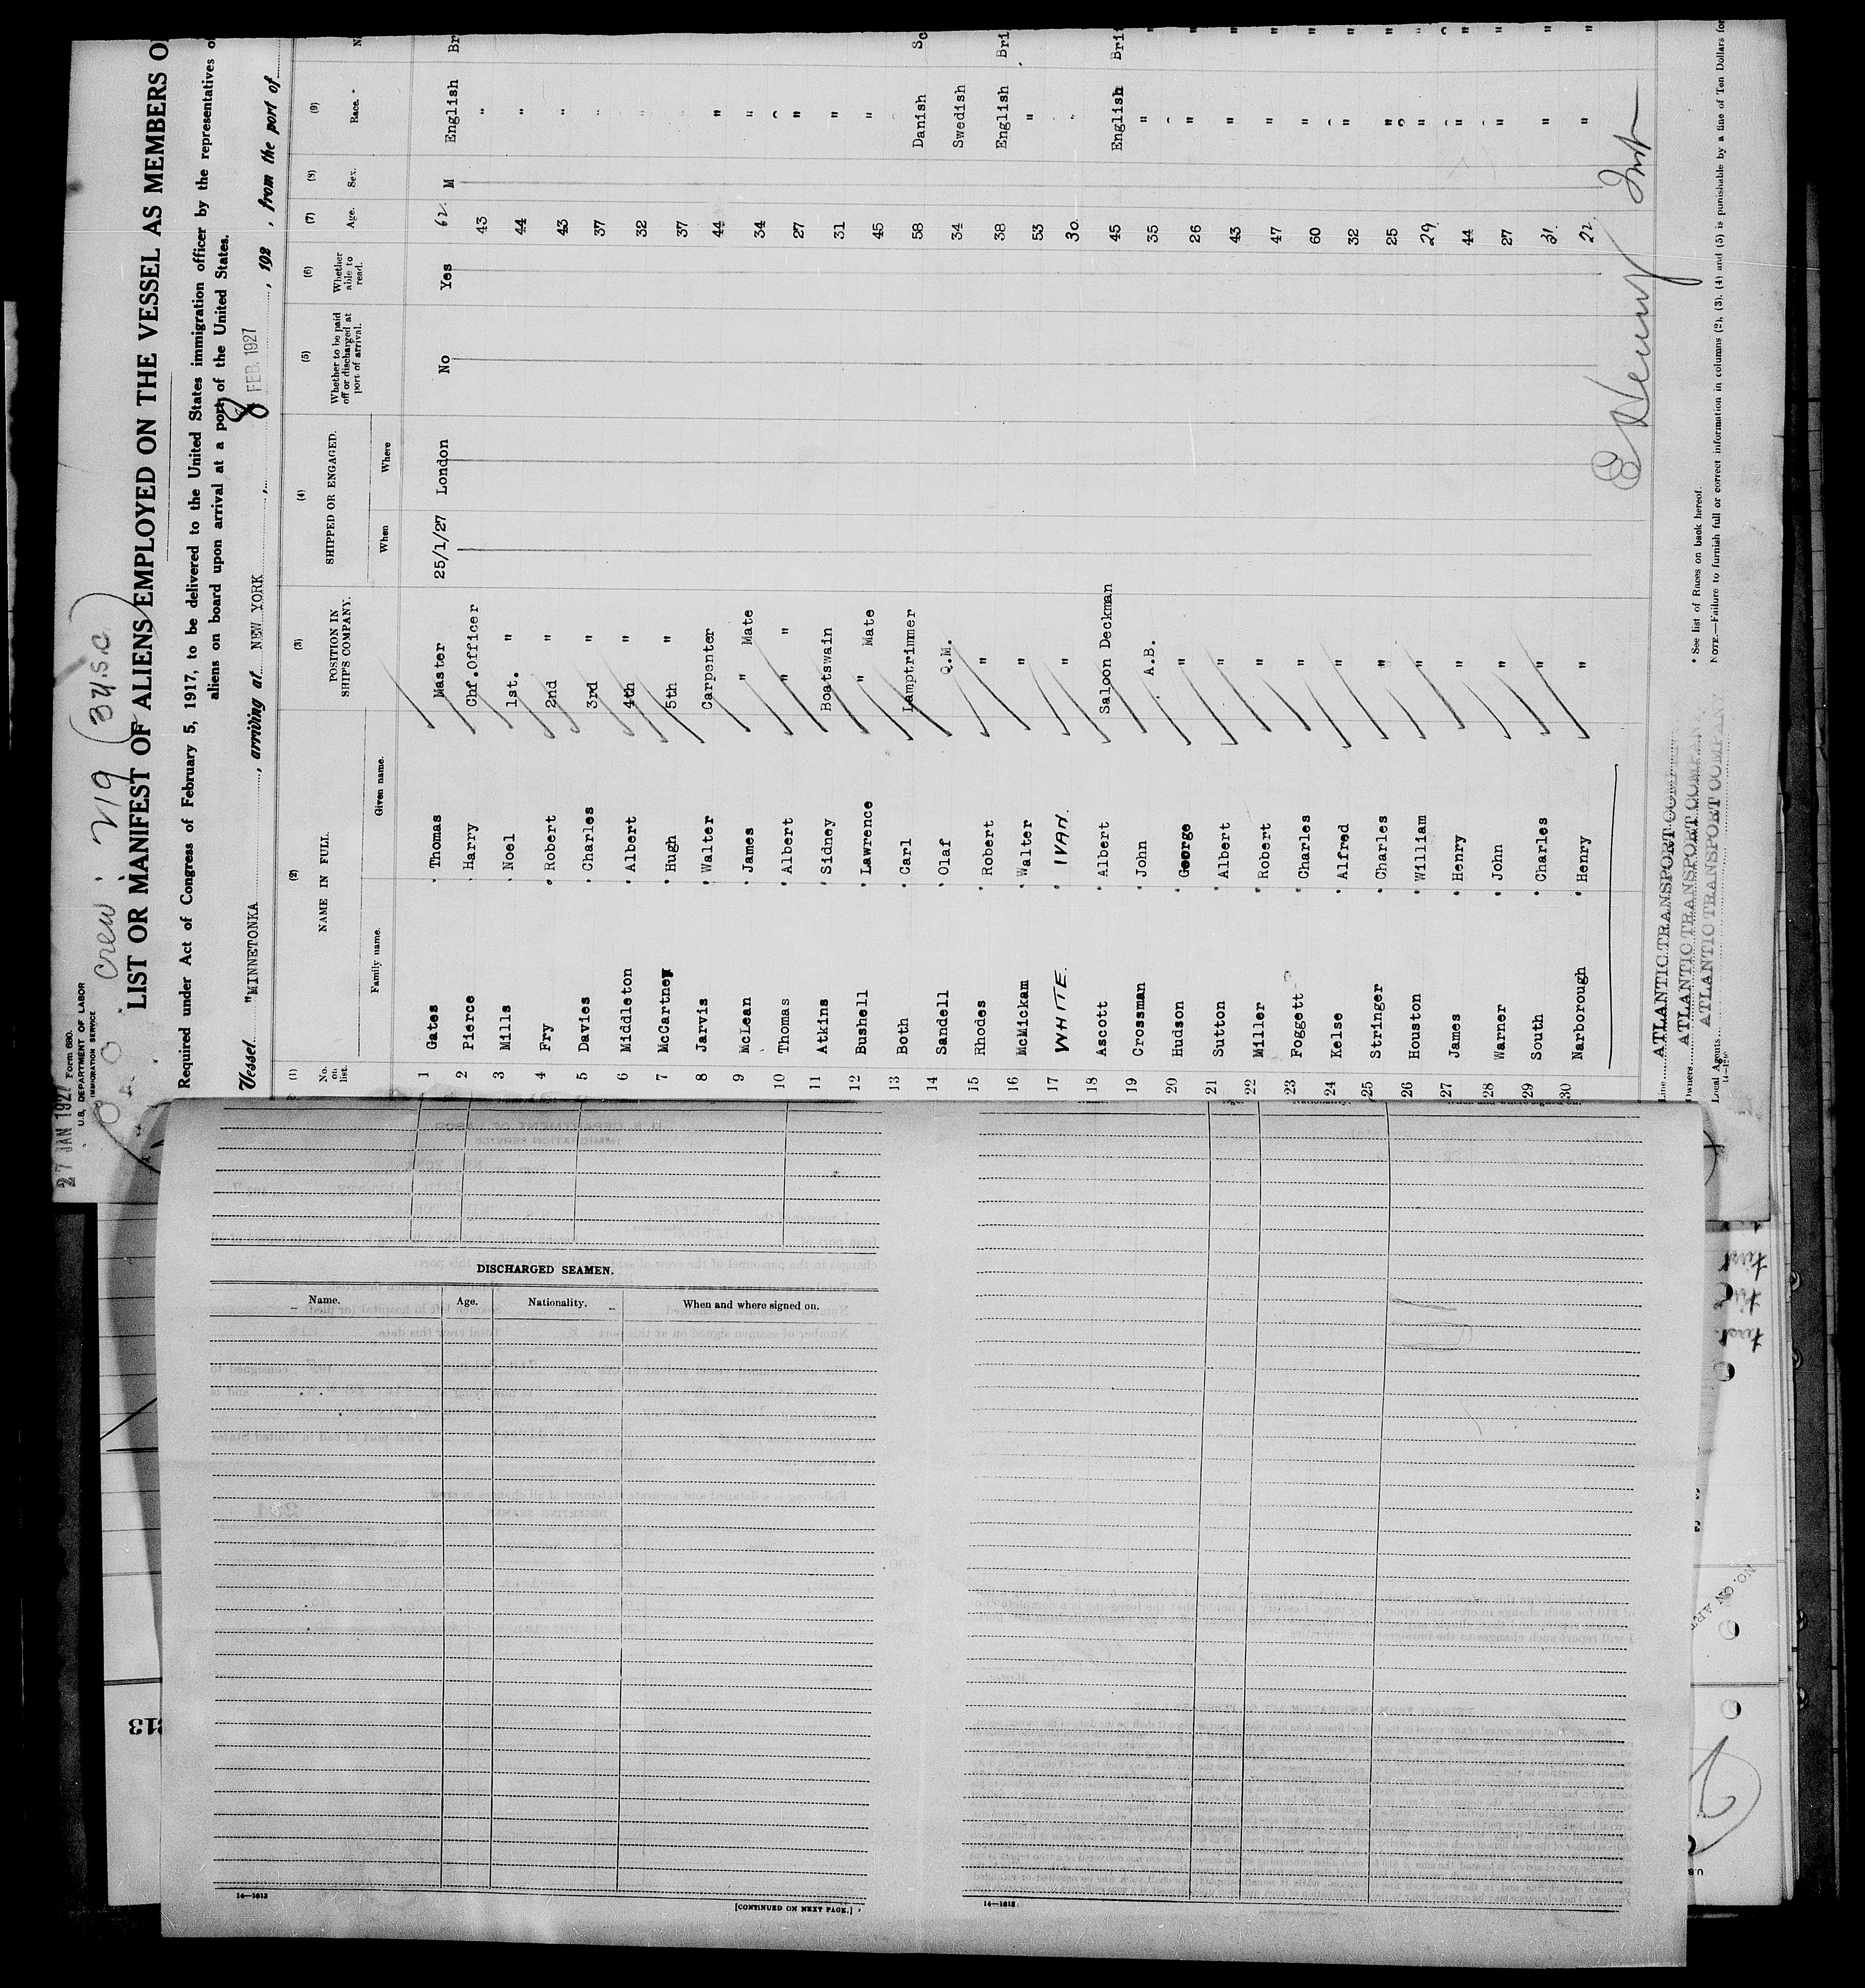 27 JAN 1927
Form 680.
U.S. DEPARTMENT OF LABOR
IMMIGRATION SERVICE
Crew: 219 (3 U.S.C)
LIST OR MANIFEST OF ALIENS EMPLOYED ON THE VESSEL AS MEMBERS O
Required under Act of Congress of February 5, 1917, to be delivered to the United States immigration officer by the representatives o
aliens on board upon arrival at a port of the United States.
Vessel "MINNETONKA , arriving at NEW YORK , 8 FEB. 1927 , 192 , from the port of
(1) (2) (3) (4) (5) (6) (7) (8) (9)
No. on list. NAME IN FULL. POSITION IN SHIP'S COMPANY. SHIPPED OR ENGAGED. Whether to be paid off or discharged at port of arrival. Whether able to read. Age. Sex. Race.* N
Family name. Given name. When Where
1 Gates Thomas Master 25/1/27 London No Yes 62 M English Br
2 Pierce Harry Chf.Officer 43 "
3 Mills Noel 1st. " 44 "
4 Fry Robert 2nd " 43 "
5 Davies Charles 3rd " 37 "
6 Middleton Albert 4th " 32 "
7 McCartney Hugh 5th " 37 "
8 Jarvis Walter Carpenter 44 "
9 McLean James " Mate 34 "
10 Thomas Albert " " 27 "
11 Atkins Sidney Boatswain 31 "
12 Bushell Lawrence " Mate 45 "
13 Both Carl Lamptrimmer 58 Danish Sc
14 Sandell Olaf Q.M. 34 Swedish
15 Rhodes Robert " 38 English Bri
16 McMickam Walter " 53 "
17 WHITE. IVAN. " 30. "
18 Ascott Albert Saloon Deckman 45 English Bri
19 Crossman John A.B. 35 " "
20 Hudson George " 26 " "
21 Sutton Albert " 43 " "
22 Miller Robert " 47 " "
23 Foggett Charles " 60 " "
24 Kelse Alfred " 32 " "
25 Stringer Charles " 25 " "
26 Houston William " 29. " "
27 James Henry " 44 " "
28 Warner John " 27 " "
29 South Charles " 31. " "
30 Narborough Henry " 22 " "
Line
ATLANTIC TRANSPORT COMP
Owners
ATLANTIC TRANSPORT COMPAN
Local Agents
ATLANTIC TRANSPORT COMPANY
14—1240
* See list of Races on back hereof.
NOTE.—Failure to furnish full or correct information in columns (2), (3), (4) and (5) is punishable by a fine of Ten Dollars for
DISCHARGED SEAMEN.
Name. Age. Nationality. When and where signed on.
14—1613
[CONTINUED ON NEXT PAGE.]
14—1613
213